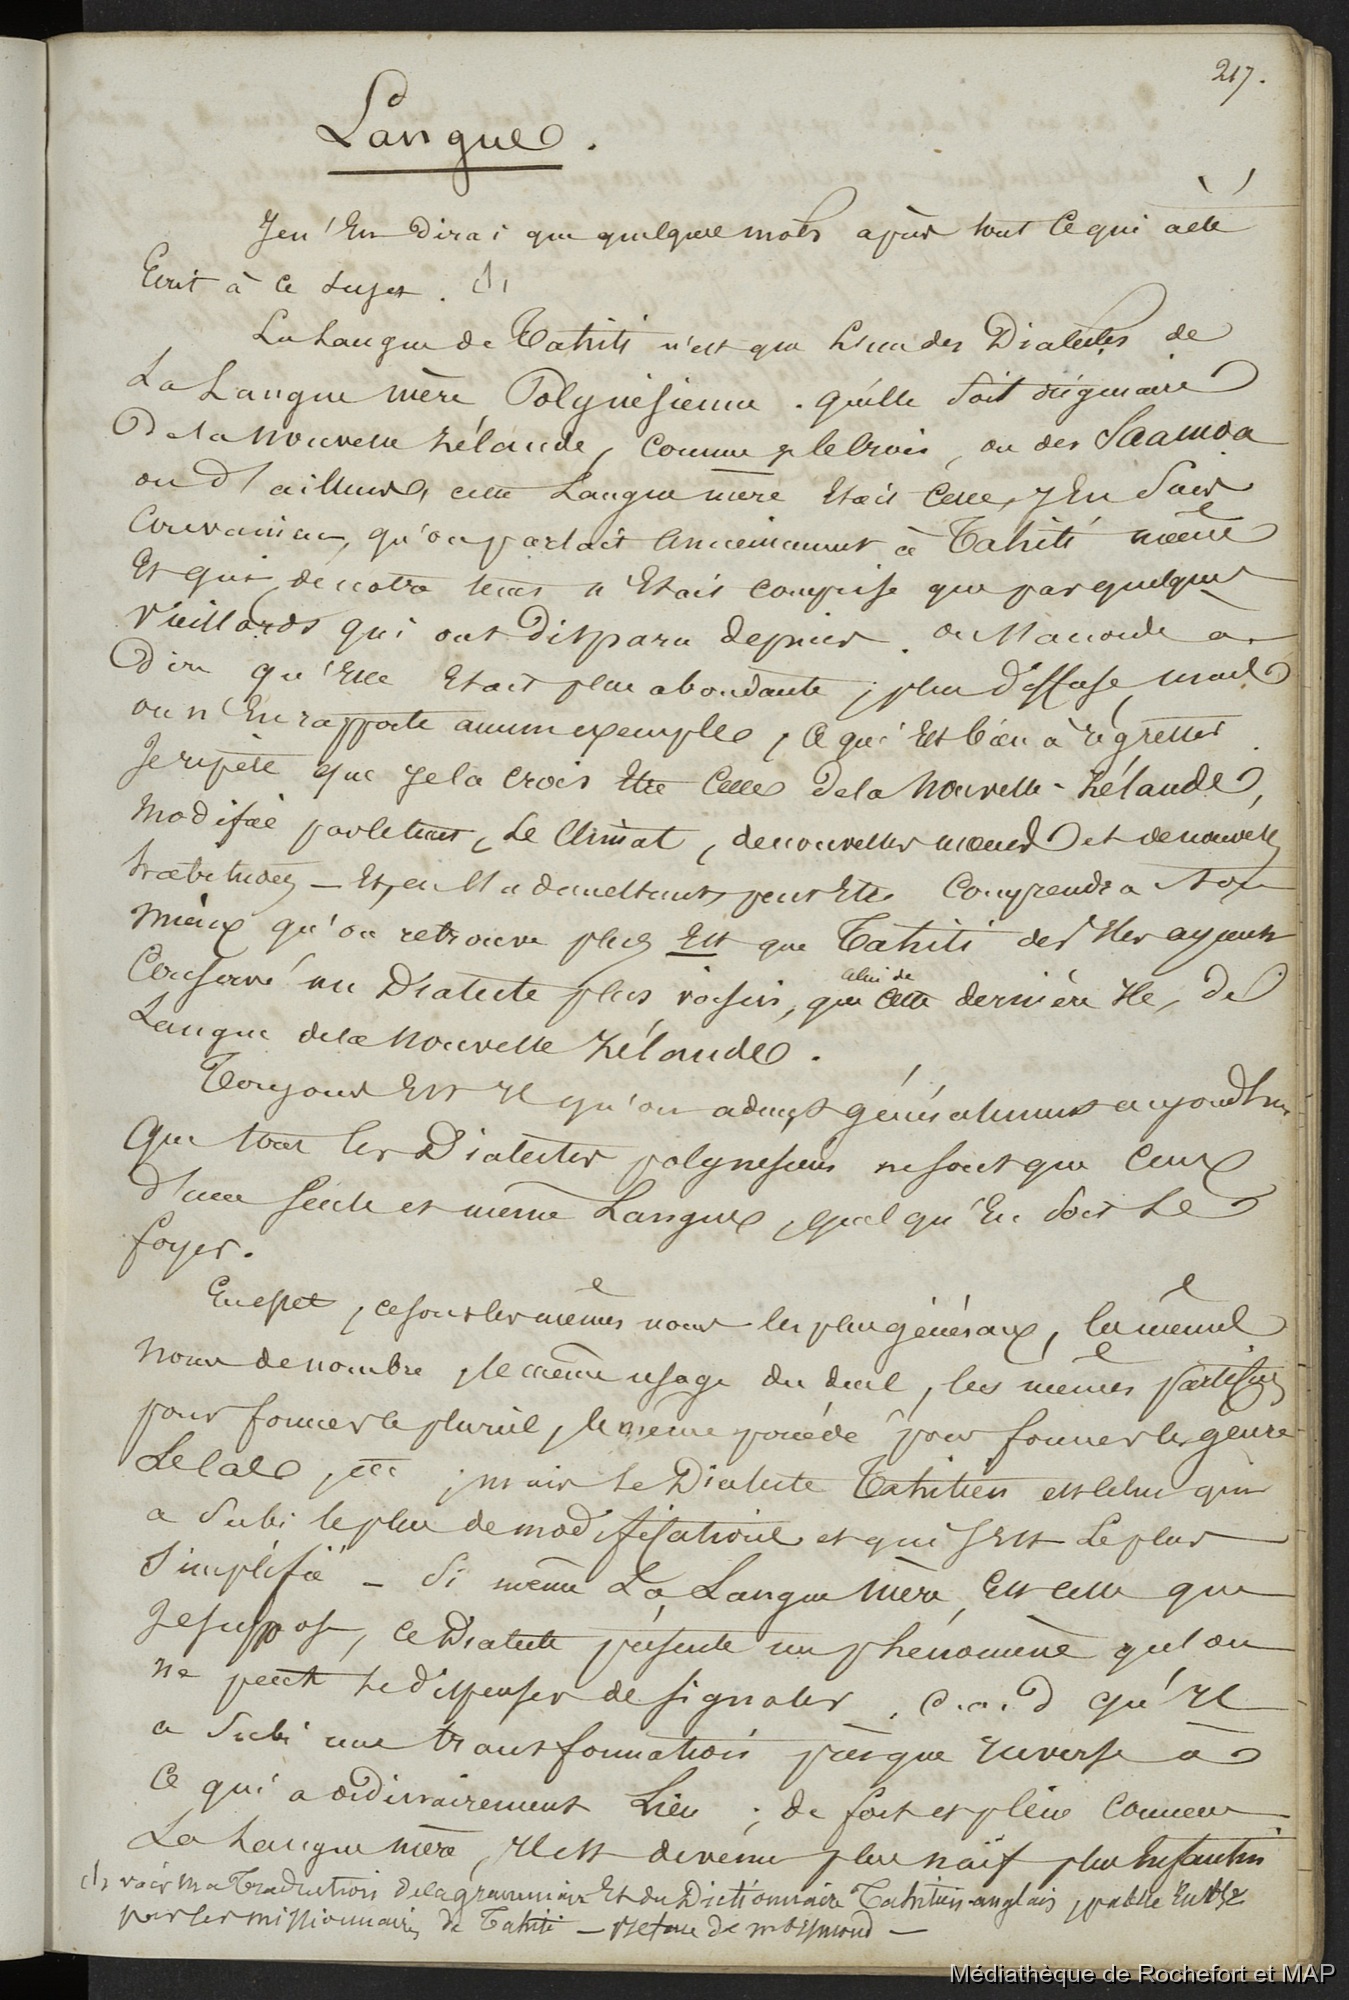 217.
Langue.
Je n'En dirai que quelques mots après tout Ce qui a été
Ecrit à ce sujet. (1)
La Langue de Tahiti n'est que L'un des Dialectes de
La Langue mère Polynésienne. qu'elle soit originaire
De la Nouvelle Zélande, comme je le crois, ou des Saamoa
ou d'ailleurs, cette Langue mère Etait Celle, J'En suis
Convaincu, qu'on parlait Anciennement à Tahiti même
Et qui, de notre tems n'Etait comprise que par quelques
Vieillards qui ont disparu depuis. on s'accorde à
Dire qu'Elle Etait plus abondante, plus diffuse, mais
on n'En rapporte aucun exemple, Ce qui Est bien à régretter.
Je répète que Je la crois Etre Celle de la Nouvelle-Zélande,
Modifiée par le tems, Le Climat, de nouvelles mœurs et de nouvelles
habitudes — Et, en l'admettant, peut Etre Comprendra t'on
Mieux qu'on retrouve plus Est que Tahiti des Iles ayant
Conservé un Dialecte plus voisin, que celui de cette dernière Ile, de
Langue de la Nouvelle Zélande.
Toujours Est Il qu'on admet généralement aujourd'hui
Que tous les Dialectes polynésiens ne sont que Ceux
d'une seule et même Langue, quel qu'En soit Le
foyer.
En effet, ce sont les mêmes noms les plus généraux, les mêmes
Noms de nombre, le même usage du duel, les mêmes particules
pour former le pluriel, le même procédé pour former les genres
Le cas, etc; mais Le Dialecte Tahitien est celui qui
a subi le plus de modifications et qui s'Est Le plus
Simplifié — Si même La Langue Mère Est celle que
Je suppose, ce Dialecte présente un phénomène qu'on
ne peut se dispenser de signaler, C. a. d qu'Il
a subi une transformation presque Inverse à
Ce qui a ordinairement Lieu; de fort et plein comme
La Langue mère, Il est devenu plus naïf plus Enfantin
(1) voir ma Traduction de la grammaire Et du Dictionnaire Tahitien-anglais, publié En
par les missionnaires de Tahiti —
Médiathèque de Rochefort et MAP